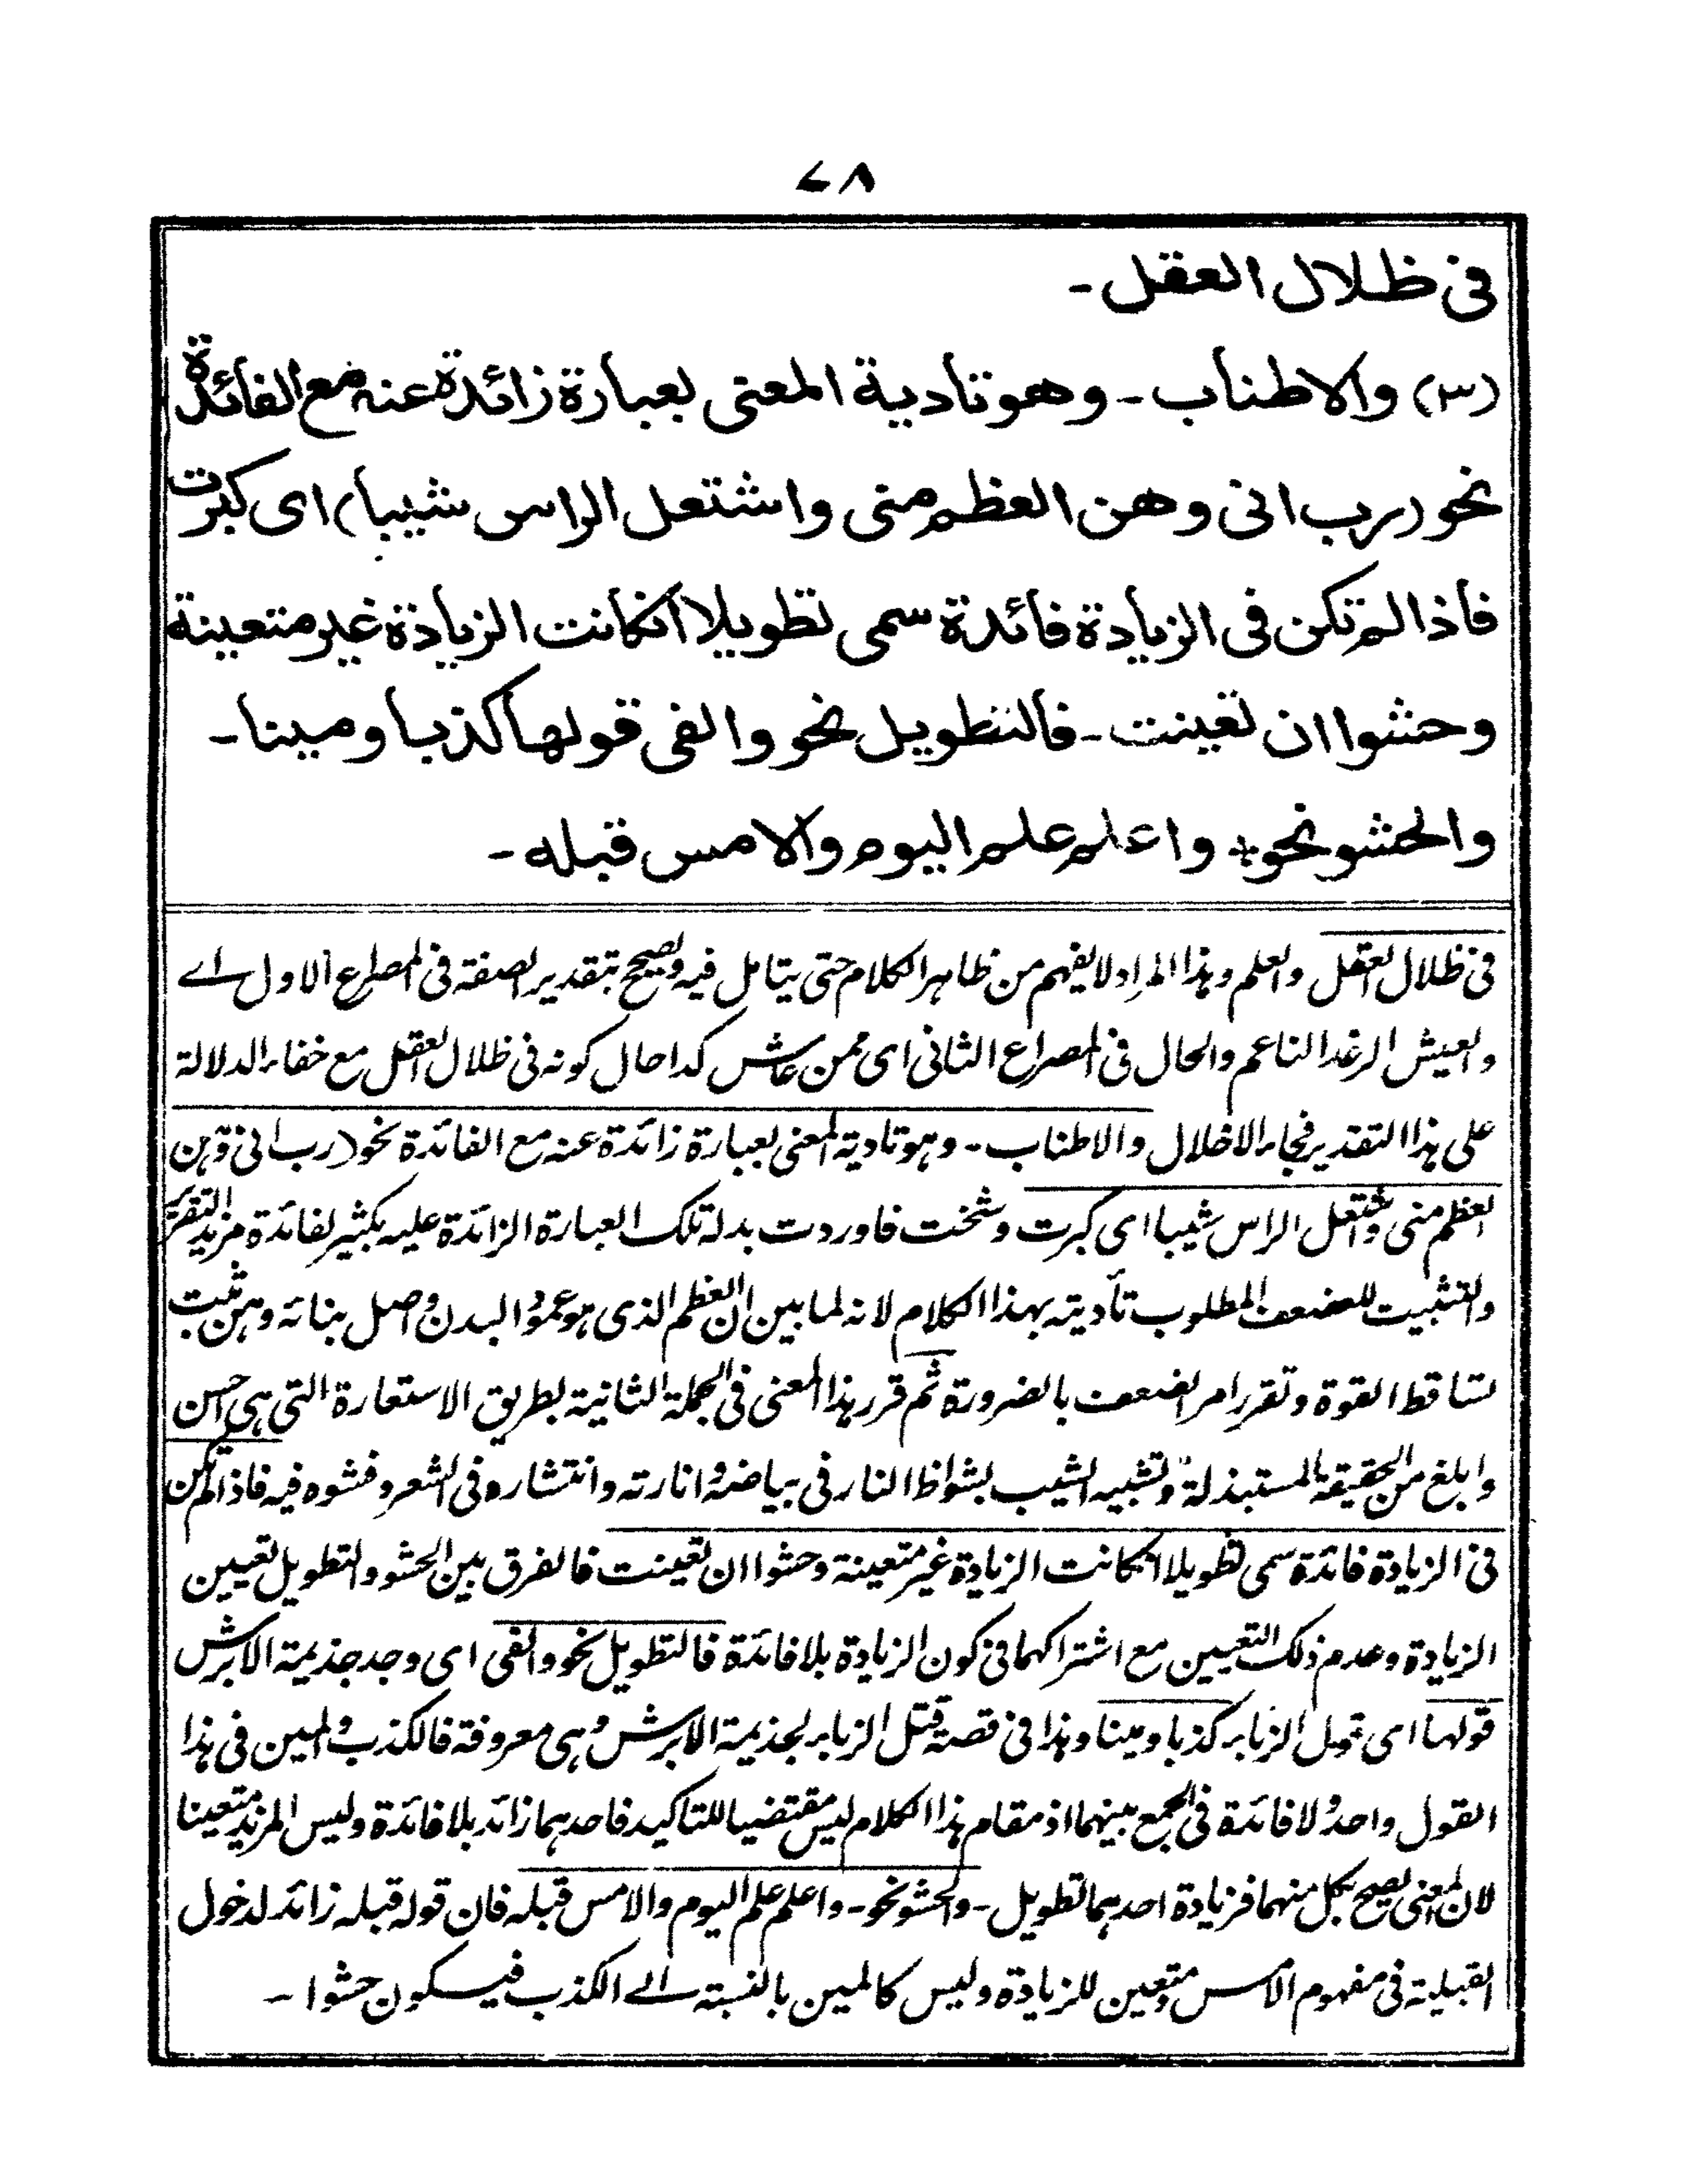 ٧٨
فى ظلال العقل -
(٣) والاطناب - وهو تادية المعنى بعبارة زائدة عنه مع الفائدة
نحو (رب انى وهن العظم منى واشتعل الراس شيبا) اى كبرت
فاذا لم تكن فى الزيادة فائدة سمى تطويلا انكانت الزيادة غير متعينة
وحشوا ان تعينت - فالتطويل نحو والفى قولها كذبا ومينا -
والحشو نحو واعلم علم اليوم والامس قبله -
فى ظلال العقل والعلم وهذا المراد لا يفهم من ظاهر الكلام حتى يتامل فيه ويصحح بتقدير لصفة فى المصراع الاول اے
والعيش الرغد الناعم والحال فى المصراع الثانى اى ممن عاش كدا حال كونه فى ظلال العقل مع خفاء الدلالة
على هذا التقدير فجاء الاخلال والاطناب - وهو تادية المعنى بعبارة زائدة عنه مع الفائدة نحو (رب انى وهن
العظم منى واشتعل الراس شيبا اى كبرت وشخت فاوردت بدله تلك العبارة الزائدة عليه بكثير لفائدة مزيد التقرر
والتثبيت للضعف المطلوب تأديته بهذا الكلام لانه لما بين ان العظم الذى هو عمود البدن واصل بنائه وهن ثبت
تساقط القوة وتقرر امر الضعف بالضرورة ثم قرر هذا المعنى فى الجملة الثانية بطريق الاستعارة التى هى احسن
وابلغ من الحقيقة المستبذلة وتشبيه الشيب بشواظ النار فى بياضه وانارته وانتشاره فى الشعر وفشوه فيه فاذا لم تكن
فى الزيادة فائدة سمى تطويلا انكانت الزيادة غير متعينة وحشوا ان تعينت فالفرق بين الحشو والتطويل تعيين
الزيادة وعدم ذلك التعيين مع اشتراكهما فى كون الزيادة بلا فائدة فالتطويل نحو والفى اى وجد جذيمة الابرش
قولها اى قول الزباء كذبا ومينا وهذا فى قصة قتل الزباء لجذيمة الابرش وهى معروفة فالكذب والمين فى هذا
القول واحد ولا فائدة فى الجمع بينهما اذ مقام هذا الكلام ليس مقتضيا للتاكيد فاحدهما زائد بلا فائدة وليس المزيد متعينا
لان المعنى يصح بكل منهما فزيادة احدهما تطويل - والحشو نحو - واعلم علم اليوم والامس قبله فان قوله قبله زائد لدخول
القبلية فى مفهوم الامس ومتعين للزيادة وليس كالمين بالنسبة الے الكذب فيكون حشوا -